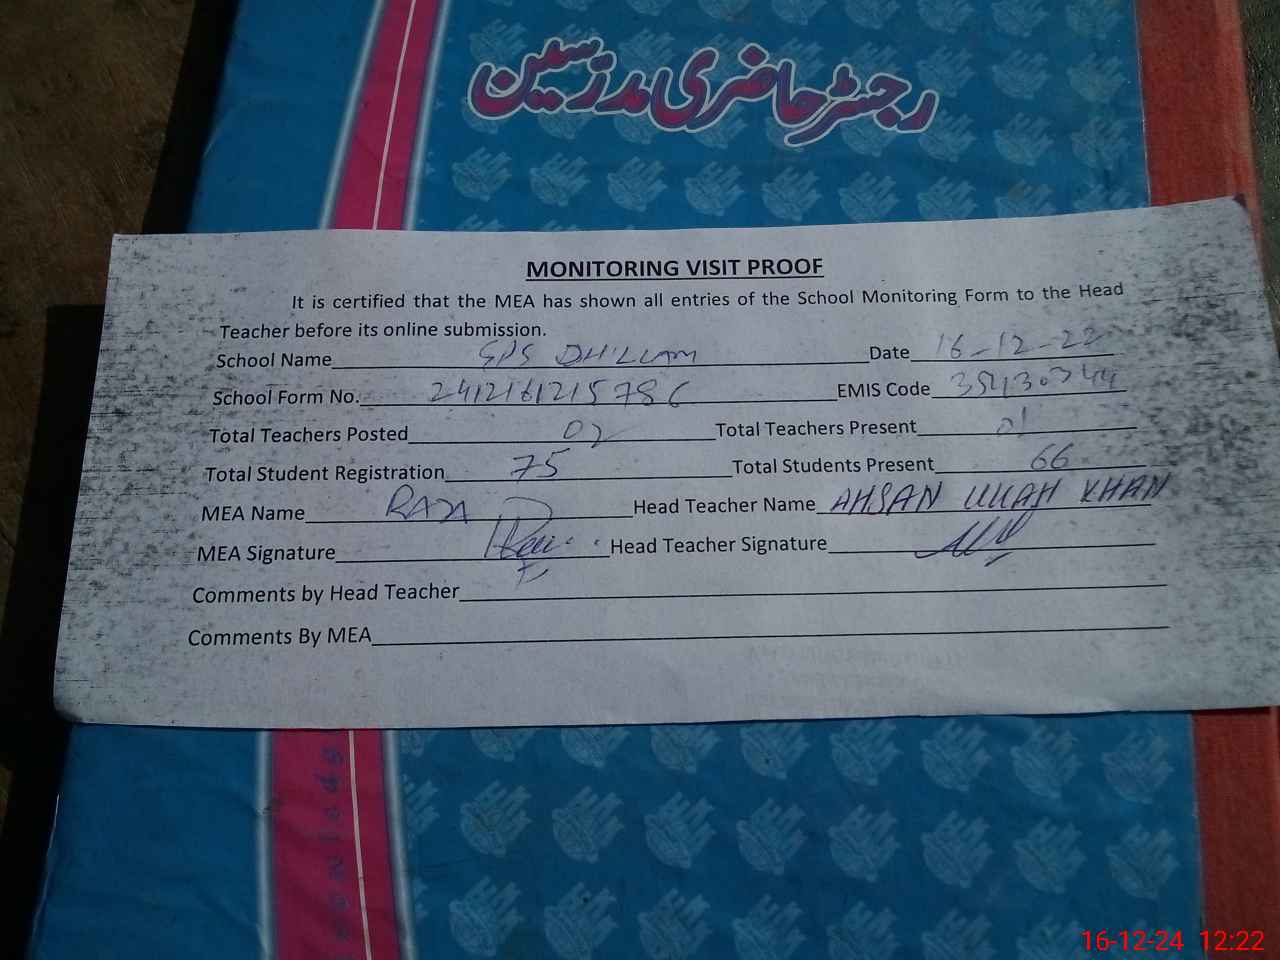 رجسٹر حاضری مدرسین
MONITORING VISIT PROOF
It is certified that the MEA has shown all entries of the School Monitoring Form to the Head
Teacher before its online submission.
School Name GPS DHILLAM Date 16-12-22
School Form No. 2412161215786 EMIS Code 35430344
Total Teachers Posted 02 Total Teachers Present 01
Total Student Registration 75 Total Students Present 66
MEA Name RAZA Head Teacher Name AHSAN ULLAH KHAN
MEA Signature Head Teacher Signature
Comments by Head Teacher
Comments By MEA
16-12-24 12:22